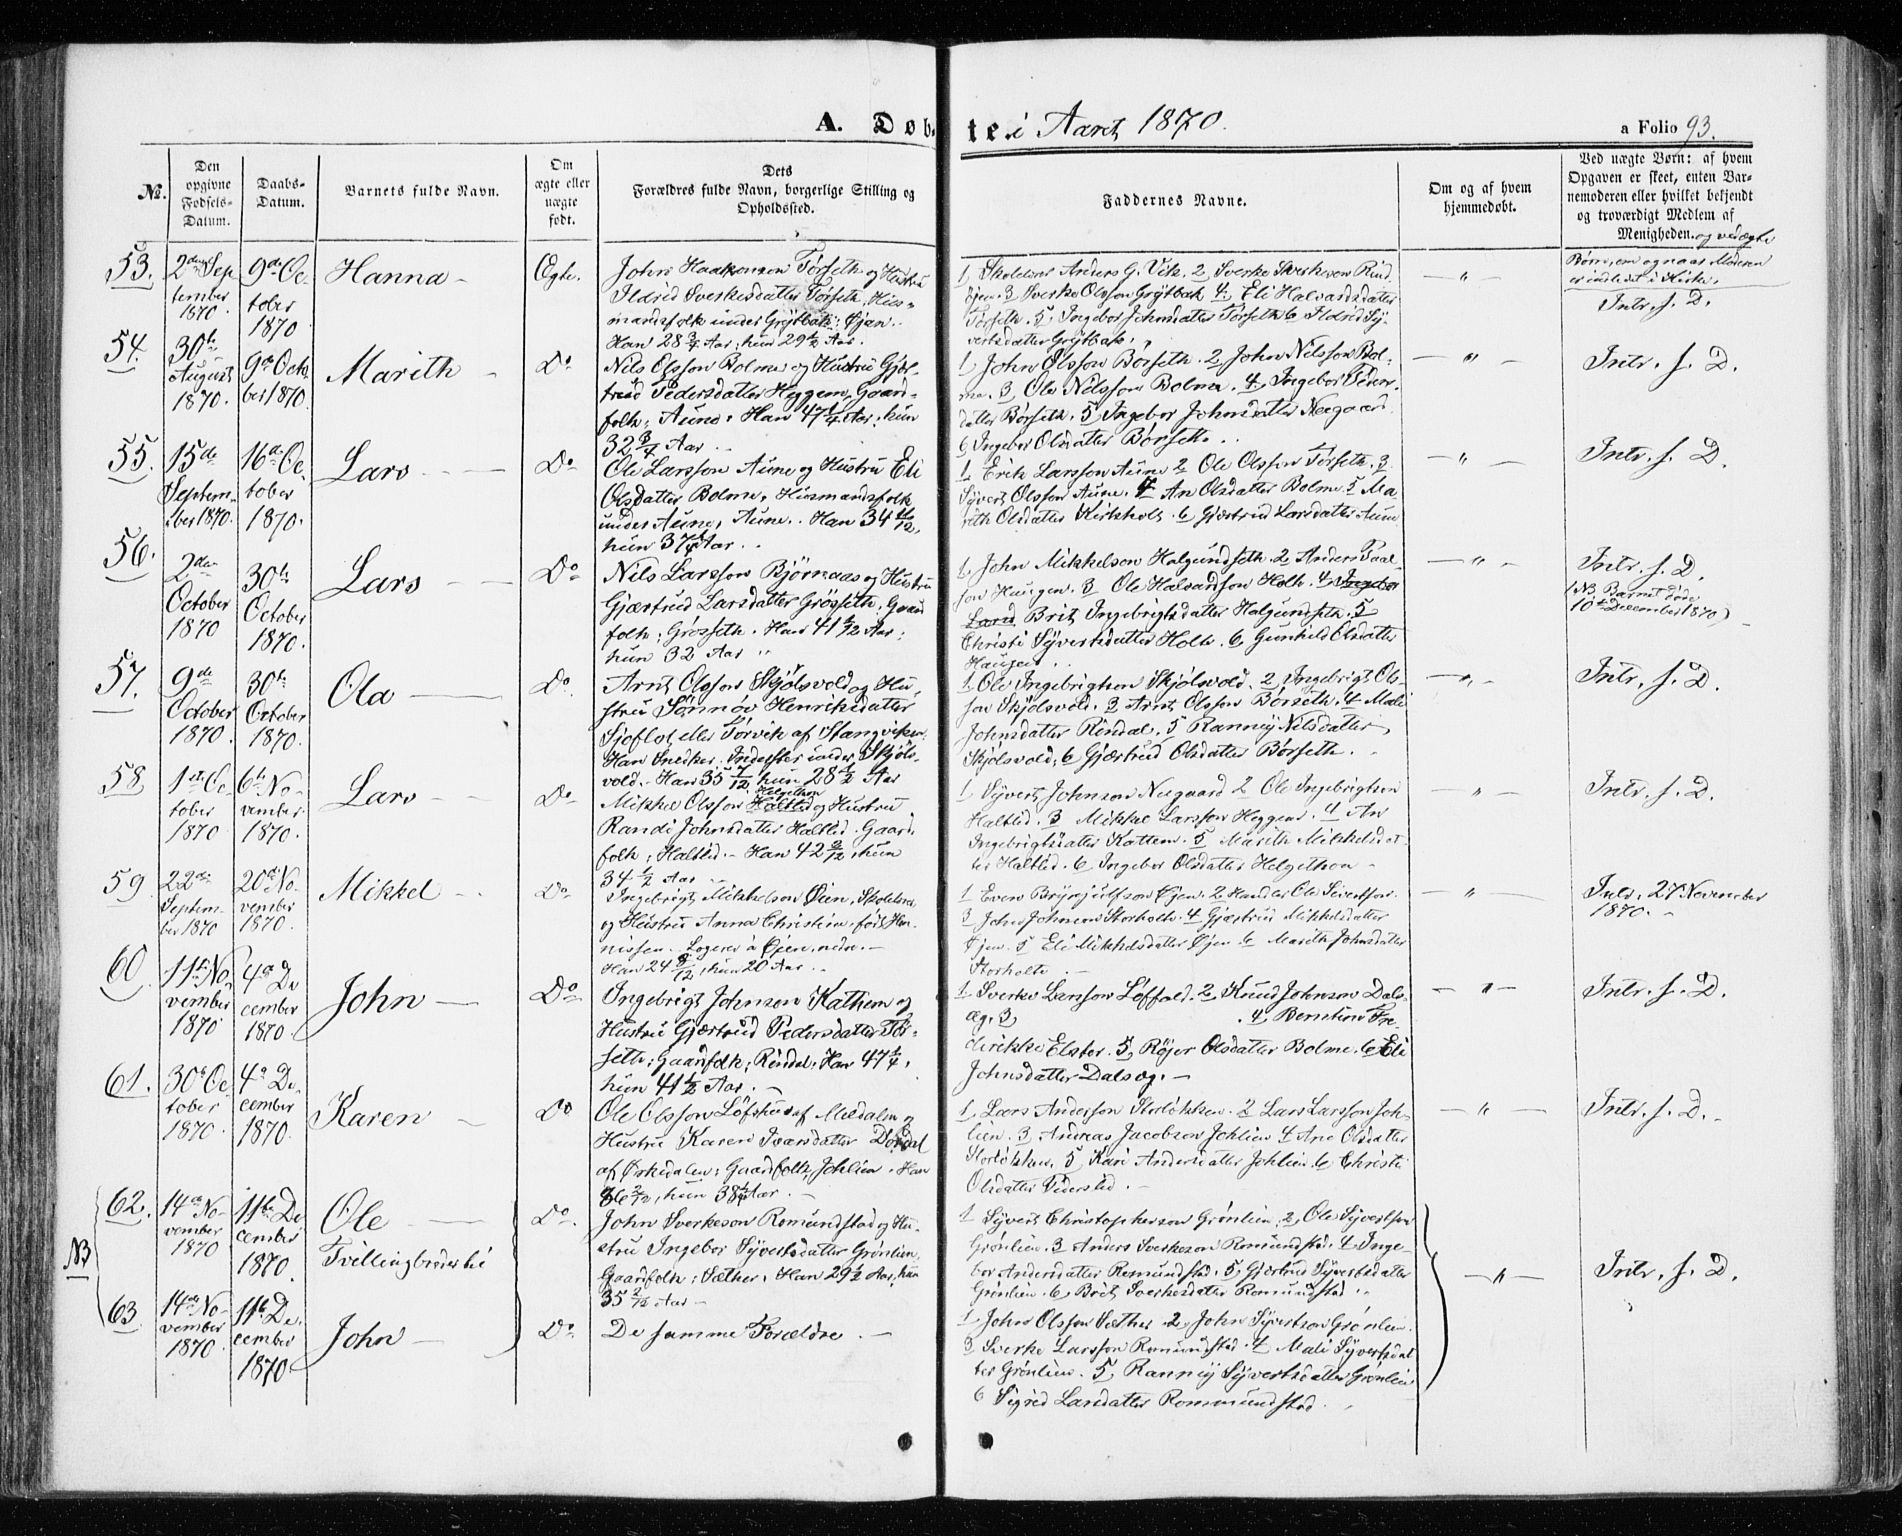 A. Døb-
te i Aaret 1870.
a Folio 93.
No.
Den
opgivne
Fødsels-
Datum.
Daabs-
Datum.
Barnets fulde Navn.
Om
ægte eller
uægte
født.
Dets
Forældres fulde Navn, borgerlige Stilling og
Opholdssted.
Faddernes Navne.
Om og af hvem
hjemmedøbt.
Ved uægte Børn: af hvem
Opgaven er skeet, enten Bar-
nemoderen eller hvilket bekjendt
og troværdigt Medlem af
Menigheden. og ved ægte
Børn, om og naar Moderen
er indledet i Kirke.
53.
2den Sep
tember
1870
9de Oc
tober
1870
Hanna -
Ægte.
John Haakonson Tørseth og Hustru
Ildrid Sverkesdatter Tørseth, Huus-
mandsfolk under Grytbak; Øjen..
Han 28 3/4 Aar; hun 29 1/2 Aar.
1, Skolelærer Anders G. Vik. 2, Sverke Sverkeson Rind
Øjen. 3 Sverke Olsson Grytbak 4, Eli Halvardsdatter
Tørseth. 5, Ingebor Johnsdatter Tørseth 6 Ildrid Sy-
vertsdatter Grytbak.
- " -
Intr. s. D.
54.
30te
August
1870.
9de Octo
ber 1870
Marith -
Do
Nils Olsson Bolme og Hustru Gjør-
trud Pedersdatter Heggem, Gaard-
folk, Aune, Han 47 1/4 Aar; hun
32 3/4 Aar
1 John Olsson Børseth. 2, John Nilsson Bol-
me. 3 Ole Nilsson Bolme. 4 Ingebor Peders-
datter Børseth. 5 Ingebor Johnsdatter Neegaard.
6 Ingebor Olsdatter Børseth..
- " -
Intr. s. D.
55.
15de
Septem-
ber 1870.
16de Oc
tober
1870.
Lars - -
Do
Ole Larsson Aune og Hustru Eli
Olsdatter Bolme, Husmandsfolk
under Aune, Aune.. Han 34 4/12,
hun 37 1/4 Aar..
1 Erik Larsson Aune 2 Ole Olsson Tørseth. 3
Syvert Olsson Aune. 4 An Olsdatter Bolme 5 Ma-
rith Olsdatter Kirkholt. 6 Gjærtrud Larsdatter Aune
- " -
Intr. s. D.
56.
2den
October
1870
30te
October
1870.
Lars - -
Do
Nils Larsson Bjørnaas og Hustru
Gjærtrud Larsdatter Grøsseth, Gaard
folk; Grøsseth. Han 41 1/2 Aar;
hun 32 Aar "
1, John Mikkelson Halgundseth. 2 Anders Paal-
son Haugen. 3 Ole Halvardson Holte. 4 Ingebor
Larsd Brit Ingebrigtsdatter Halgundseth. 5
Christi Syvertsdatter Holte. 6 Gunhild Olsdatter
Haugen..
- " -
Intr. s. D.
(NB. Barnet døde
10de December 1870)
57.
9de
October
1870.
30te
October
1870.
Ola -
Do.
Arnt Olsson Skjølsvold og Hu-
stru Sønnøv Henriksdatter
Sjøflot eller Tørvik af Stangviken.
Han Snedker. Inderster under Skjøls-
vold. Han 35 7/12 hun 28 1/2 Aar
1 Ole Ingebrigtson Skjølsvold. 2 Ingebrigt Ols-
son Skjølsvold. 3 Arnt Olsson Børseth. 4 Mali
Johnsdatter Rindal. 5 Rannøy Nilsdatter
Skjølsvold; 6 Gjærtrud Olsdatter Børseth.
- " -
Intr. s. D.
58
1ste Oc
tober
1870
6te No-
vember
1870.
Lars - -
Do
Helgethon
Mikkel Olsson Haltlid og Hustru
Randi Johnsdatter Haltlid. Gaard
folk; Haltlid.- Han 42 2/12, hun
34 1/2 Aar
1 Syvert Johnson Neegaard 2 Ole Ingebrigtson
Haltlid. 3 Mikkel Larsson Heggem. 4 An
Ingebrigtsdatter Kattem. 5 Marith Mikkelsdat-
ter Haltlid. 6 Ingebor Olsdatter Helgethon -
- " -
Intr. s. D.
59
22de
Septem-
ber 1870
20de No-
vember
1870.
Mikkel - -
Do
Ingebrigt Mikkelson Øien, Skolelærer
og Hustru Anna Christine, født Hen-
nissen. Logerer i Øjen, nedre.-
Han 24 8/12, hun 20 Aar..
1 Even Brynjulfson Øjen. 2 Handler Ole Sivertson.
3 John Johnson Storholt. 4 Gjærtrud Mikkelsdatter
Øjen. 5 Eli Mikkelsdatter Øjen 6 Marith Johnsdatter
Storholt.-
- " -
Intr. 27 November
1870.
60
11te No-
vember
1870
4de De
cember
1870.
John -
Do
Ingebrigt Johnson Kathem og
Hustru Gjærtrud Pedersdatter Tør-
seth; Gaardfolk; Rindal. Han 47 1/4,
hun 41 1/2 Aar.
1 Sverke Larsson Løffald. 2, Knud Johnson Dals-
æg. 3 . 4, Berntine Fre-
derikke Elster. 5, Røjer Olsdatter Bolme. 6 Eli
Johnsdatter Dalsæg. -
- " -
Intr. s. D.
61.
30te Oc
tober
1870
4de De-
cember
1870.
Karen -
Do
Ole Olsson Løfshus af Meldalen og
Hustru Karen Ivarsdatter Dordal
af Ørkedalen; Gaardfolk, Johlien. Han
36 2/12, hun 38 1/4 Aar. -
1 Lars Anderson Storløkken. 2 Lars Larsson Joh-
lien. 3 Andreas Jacobson Johlien 4 Ane Olsdatter
Storløkken. 5 Kari Andersdatter Johlien 6 Christi
Olsdatter Vederslid. -
- " -
Intr. s. D.
NB
62.
14de No-
vember
1870
11te De
cember
1870.
Ole -
Tvillingbrødre til
Do.
John Sverkeson Romundstad og Hu-
stru Ingebor Syvertsdatter Grønlien.
Gaardfolk; Sæther. Han 29 1/2 Aar, hun
35 2/12 Aar -
1 Syvert Christopherson Grønlien. 2, Ole Syvertson
Grønlien. 3 Anders Sverkeson Romundstad. 4 Inge-
bor Andersdatter Romundstad. 5, Gjærtrud Syvertsdatter
Grønlien. 6 Brit Sverkesdatter Romundstad
- " -
Intr. s. D.
63
14de No-
vember
1870
11te De-
cember
1870
John -
Do
De samme Forældre. -
1 John Olsson Sæther 2 John Syvertson Grønlien.
3 Sverke Larsson Romundstad. 4 Mali Syvertsdat
ter Grønlien. 5, Rannøy Syvertsdatter Grønlien
6 Sigrid Larsdatter Rommundstad.